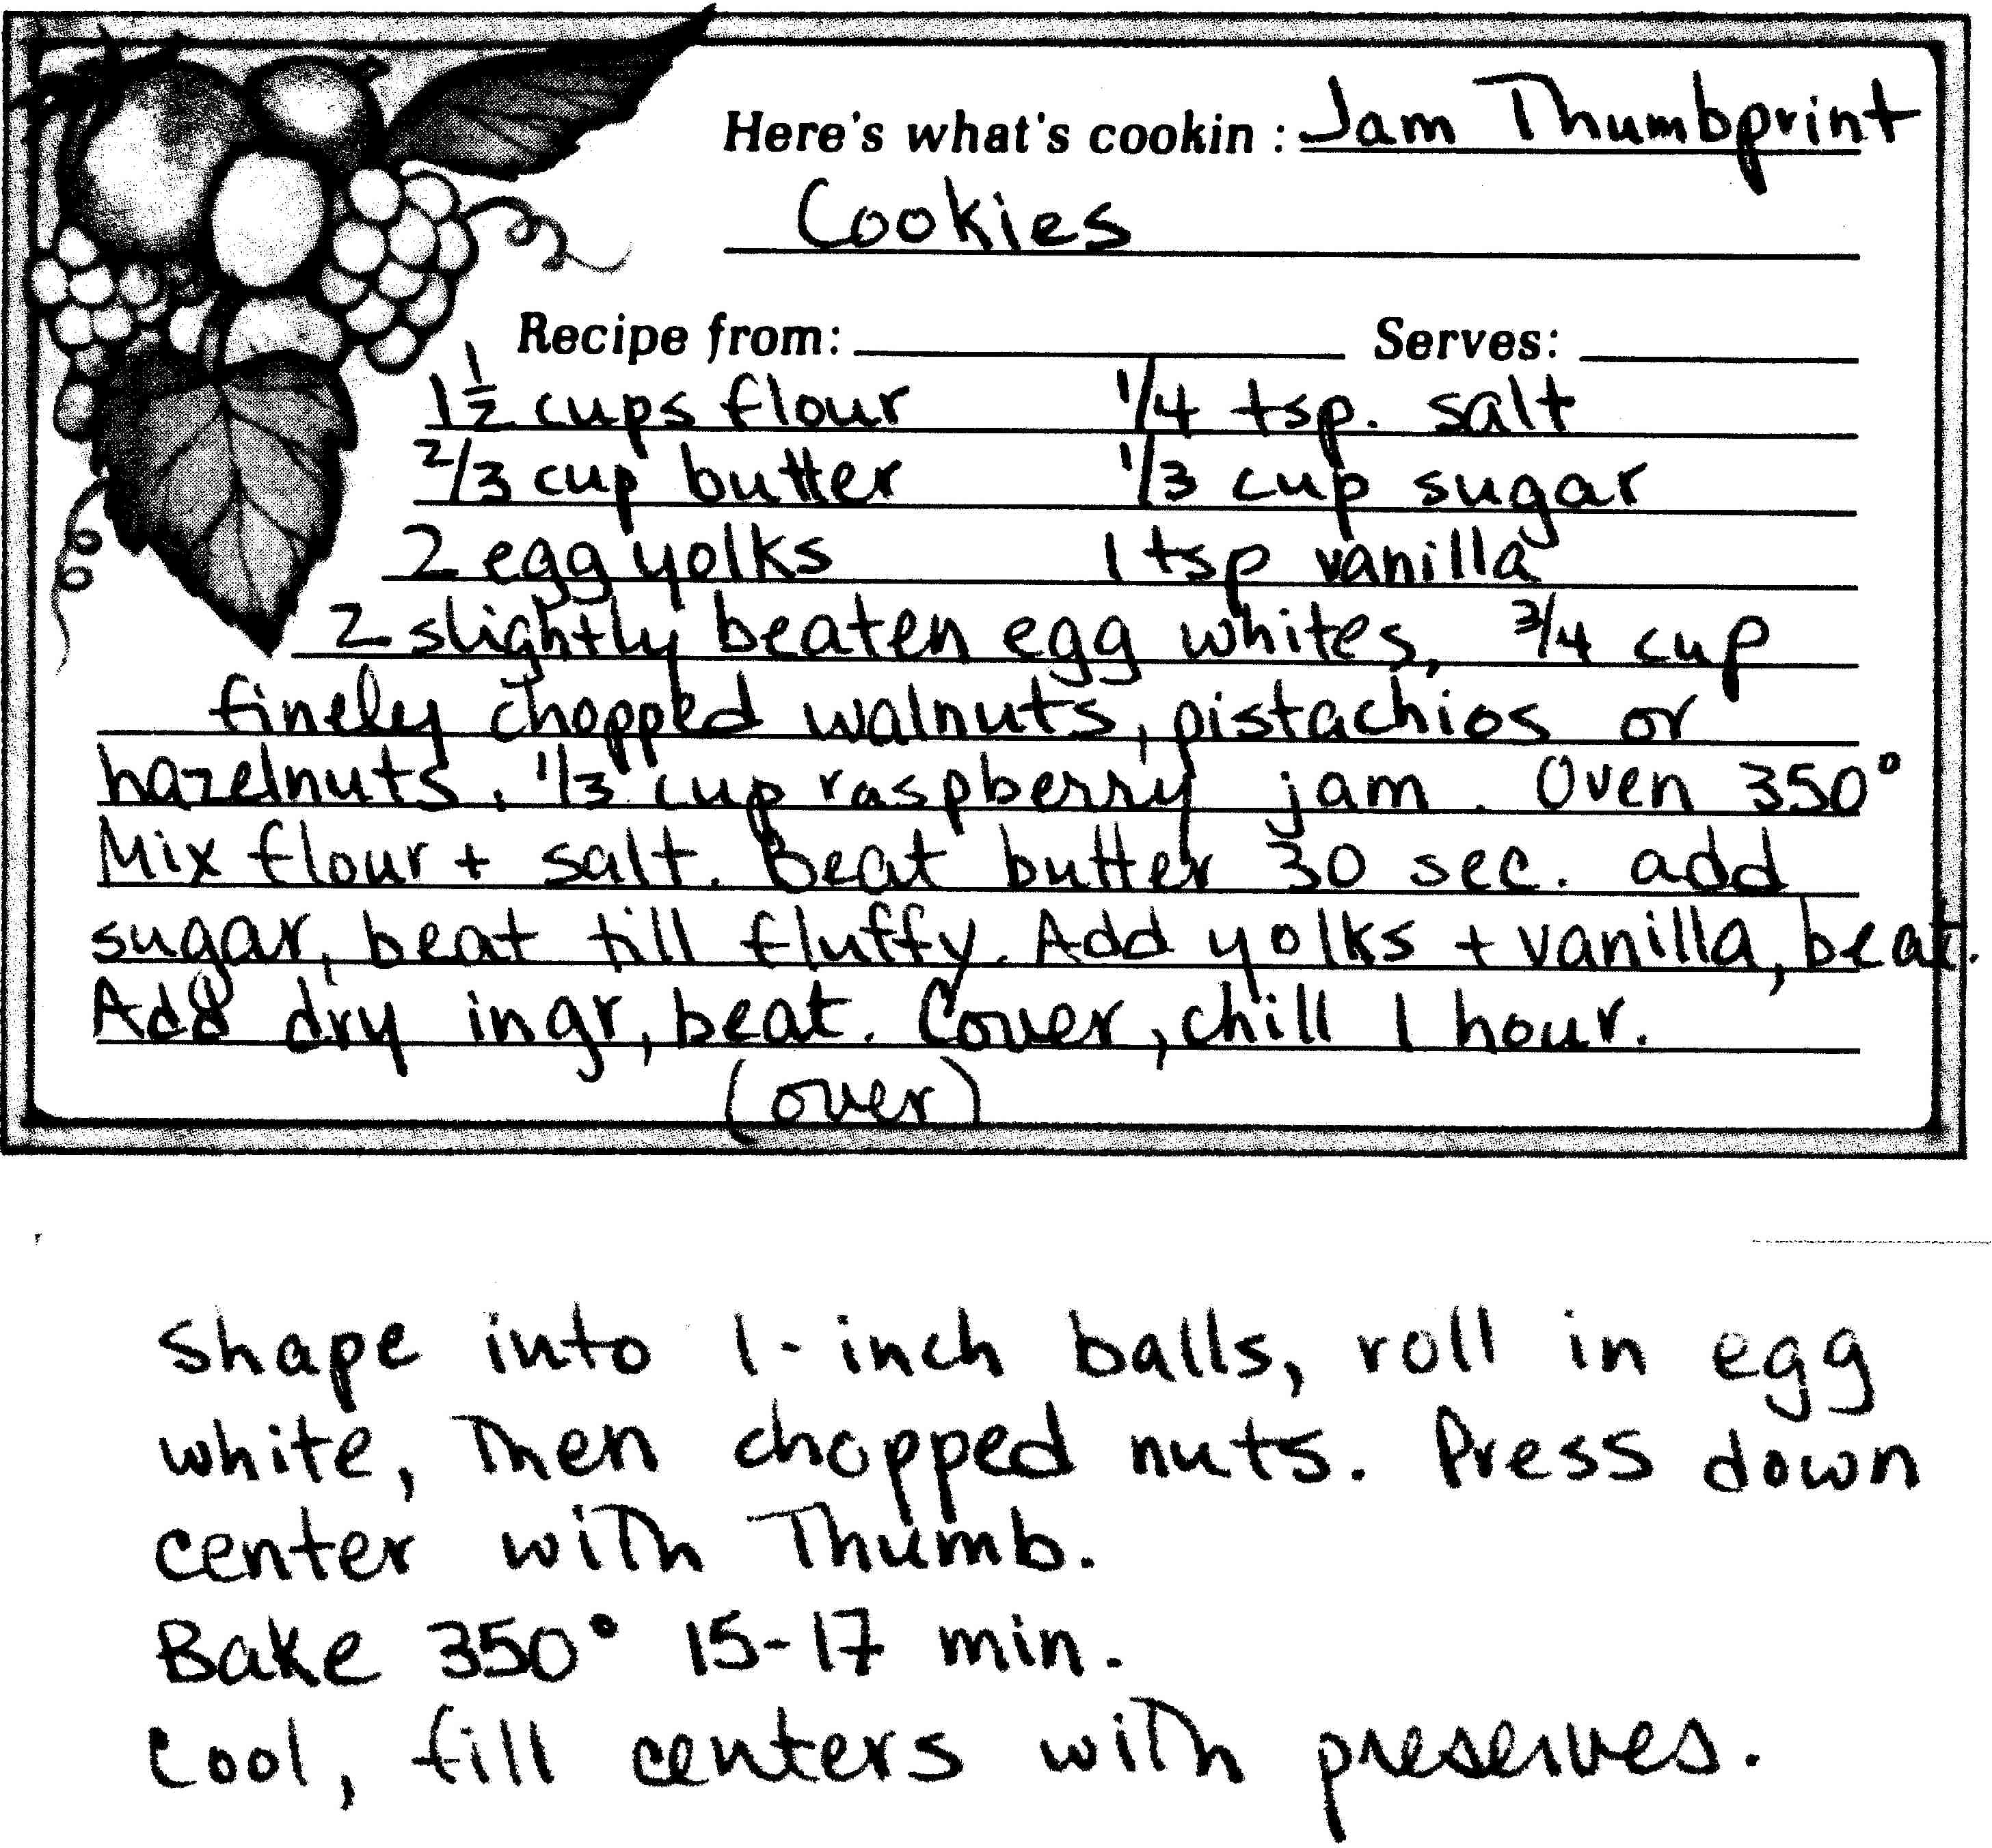 Here's what's cookin : Jam Thumbprint
Cookies
Recipe from: Serves:
1½ cups flour 1/4 tsp. salt
2/3 cup butter 1/3 cup sugar
2 egg yolks 1 tsp vanilla
2 slightly beaten egg whites, 3/4 cup
finely chopped walnuts, pistachios or
hazelnuts. 1/3 cup raspberry jam. Oven 350°
Mix flour + salt. Beat butter 30 sec. add
sugar, beat till fluffy. Add yolks + vanilla, beat.
Add dry ingr, beat. Cover, chill 1 hour.
(over)
Shape into 1-inch balls, roll in egg
white, Then chopped nuts. Press down
center with Thumb.
Bake 350° 15-17 min.
Cool, fill centers with preserves.